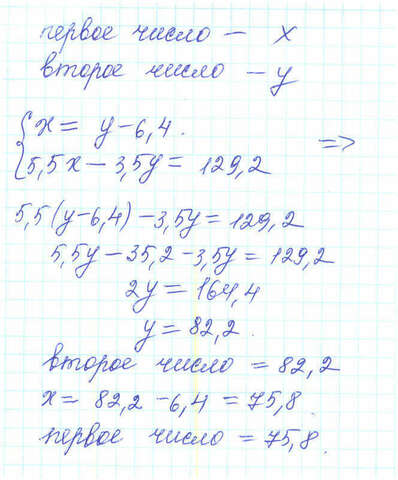 первое число – x
второе число – y
{ x = y – 6,4.
5,5x – 3,5y = 129,2 =>
5,5(y – 6,4) – 3,5y = 129,2
5,5y – 35,2 – 3,5y = 129,2
2y = 164,4
y = 82,2.
второе число = 82,2
x = 82,2 – 6,4 = 75,8.
первое число = 75,8.